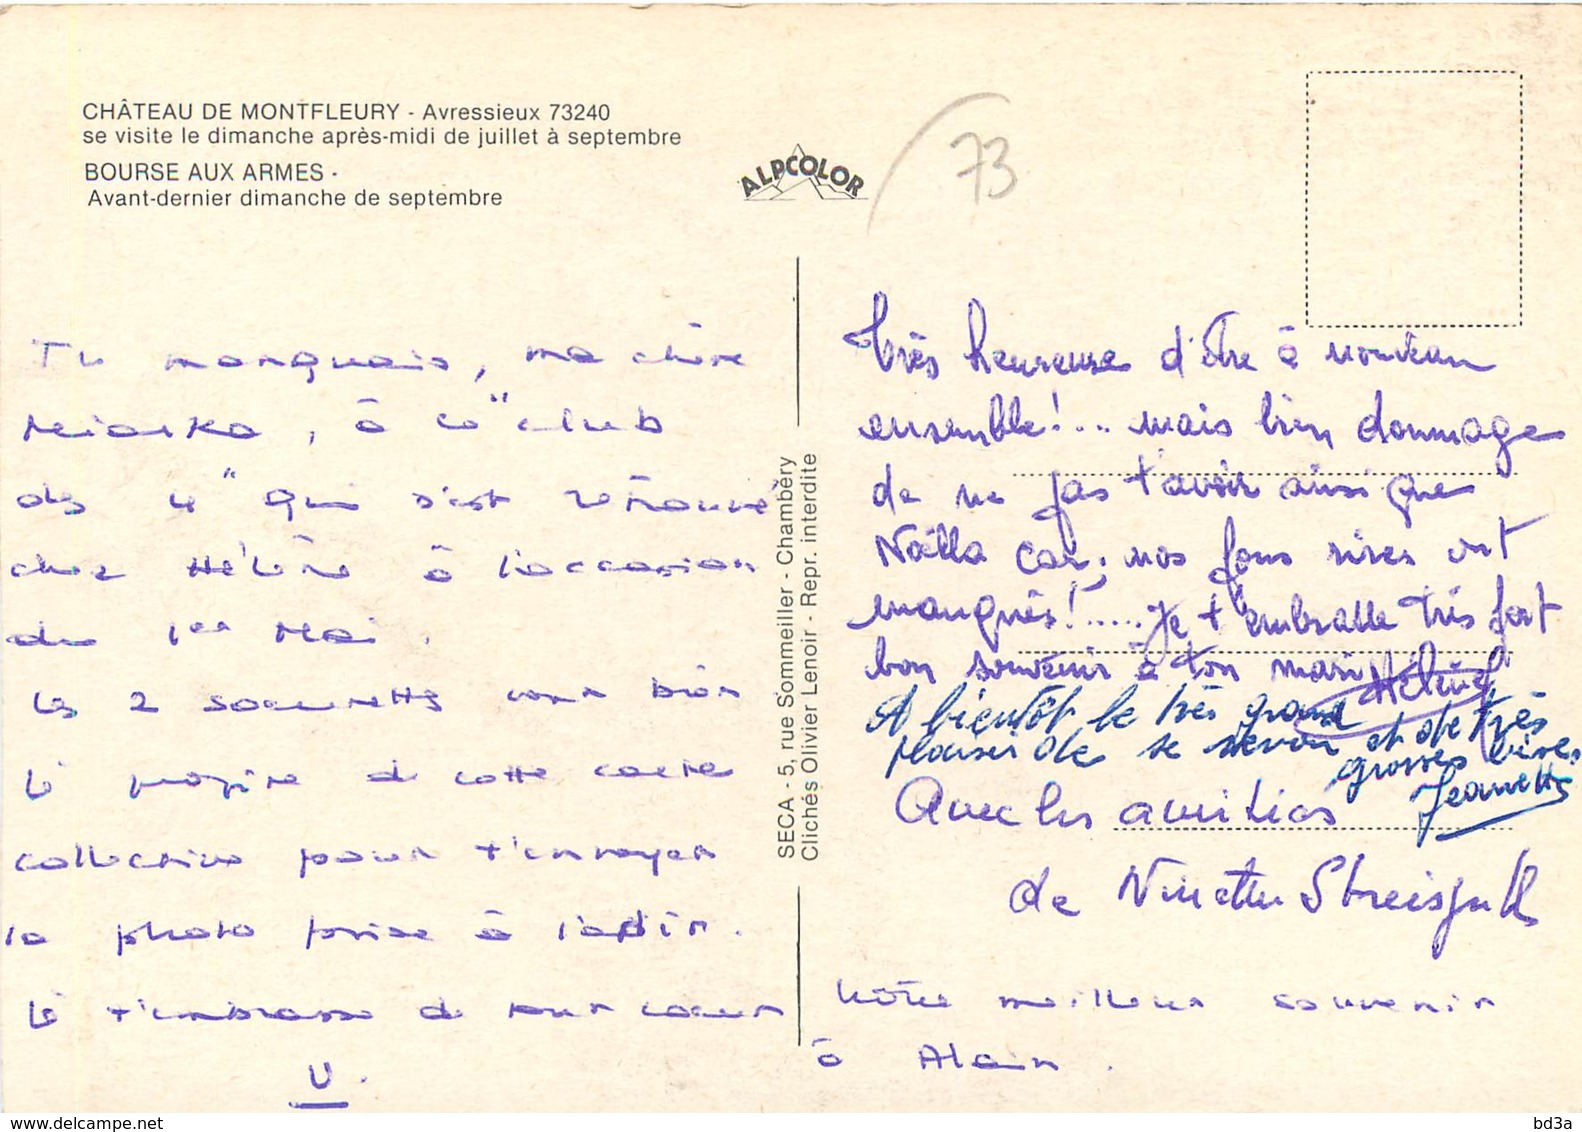 CHÂTEAU DE MONTFLEURY - Avressieux 73240
se visite le dimanche après-midi de juillet à septembre
BOURSE AUX ARMES -
Avant-dernier dimanche de septembre
ALPCOLOR
73
Tu manquais, ma chère
à ce "club
des 4" qui s'est retrouvé
chez Hélène à l'occasion
du 1er Mai.
Les 2 soeurettes vont bien
Je profite de cette carte
collective pour t'envoyer
la photo prise à
Je t'embrasse de tout coeur
U.
SECA - 5, rue Sommeiller - Chambéry
Clichés Olivier Lenoir - Repr. interdite
Très heureuse d'être à nouveau
ensemble!... mais bien dommage
de ne pas t'avoir ainsi que
Noëlla car, nos fous rires ont
manqués!..... Je t'embrasse très fort
bon souvenir à ton mari Hélène
A bientôt le très grand
plaisir de se revoir et de très
grosses bises.
Jeannette
Avec les amitiés
de Ninette
Notre meilleur souvenir
à Alain.
delcampe.net
bd3a